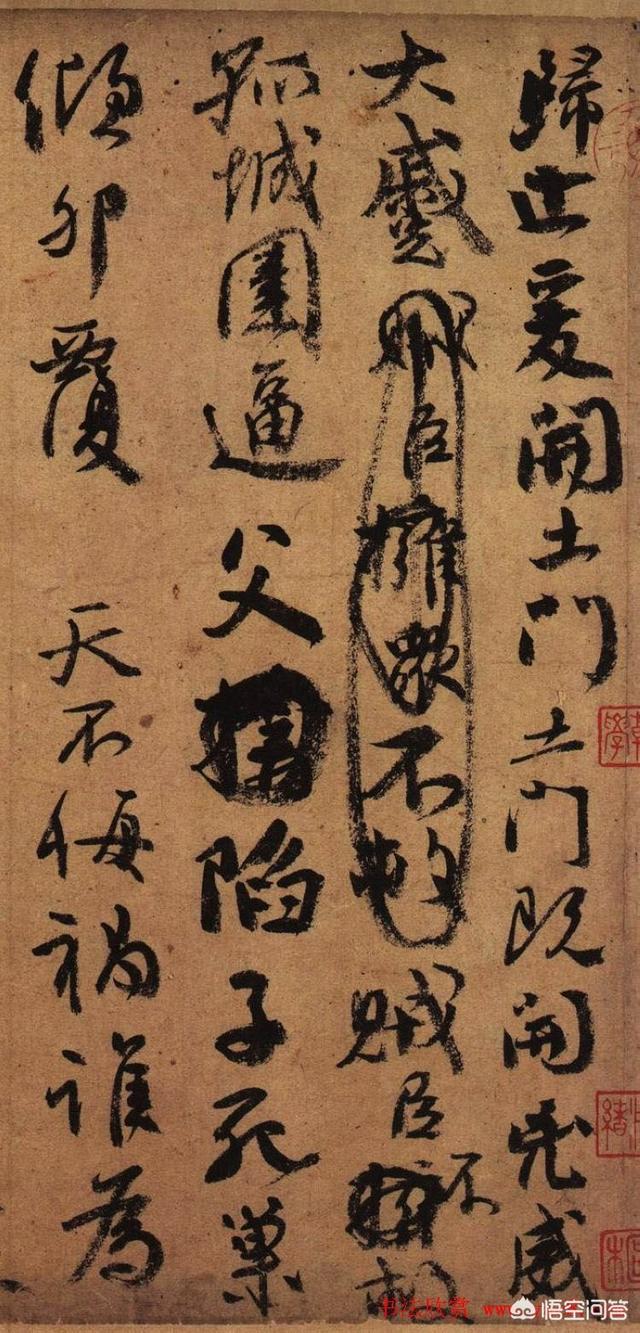 歸止爰開土門土門既開凶威
大蹙賊臣擁衆不救賊臣不救
孤城圍逼父陷子死巢
傾卵覆天不悔禍誰為
书法欣赏 www
悟空问答